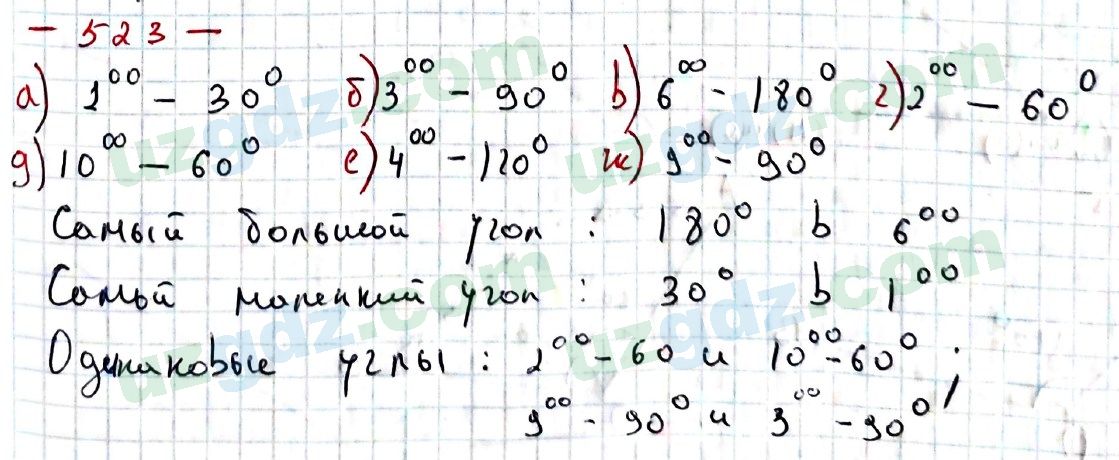 - 523 -
а) 1⁰⁰ - 30⁰ б) 3⁰⁰ - 90⁰ в) 6⁰⁰ - 180⁰ г) 2⁰⁰ - 60⁰
д) 10⁰⁰ - 60⁰ е) 4⁰⁰ - 120⁰ ж) 9⁰⁰ - 90⁰
Самый большой угол : 180⁰ в 6⁰⁰
Самый маленкий угол : 30⁰ в 1⁰⁰
Одинаковые углы : 2⁰⁰ - 60 и 10⁰⁰ - 60⁰ ;
9⁰⁰ - 90⁰ и 3⁰⁰ - 90⁰
uzgdz.com
uzgdz.com
uzgdz.com
uzgdz.com